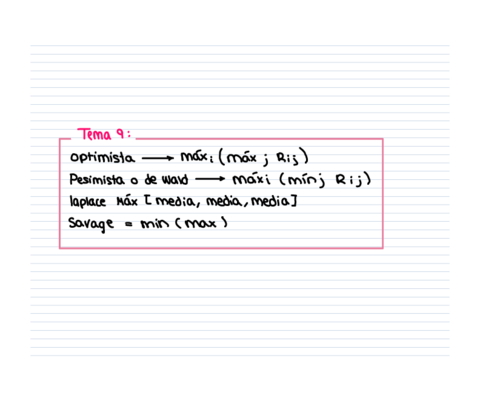 Tema 9:
optimista → máx i (máx j Rij)
Pesimista o de Wald → máx i (mín j Rij)
laplace Máx [media, media, media]
Savage = min (max)